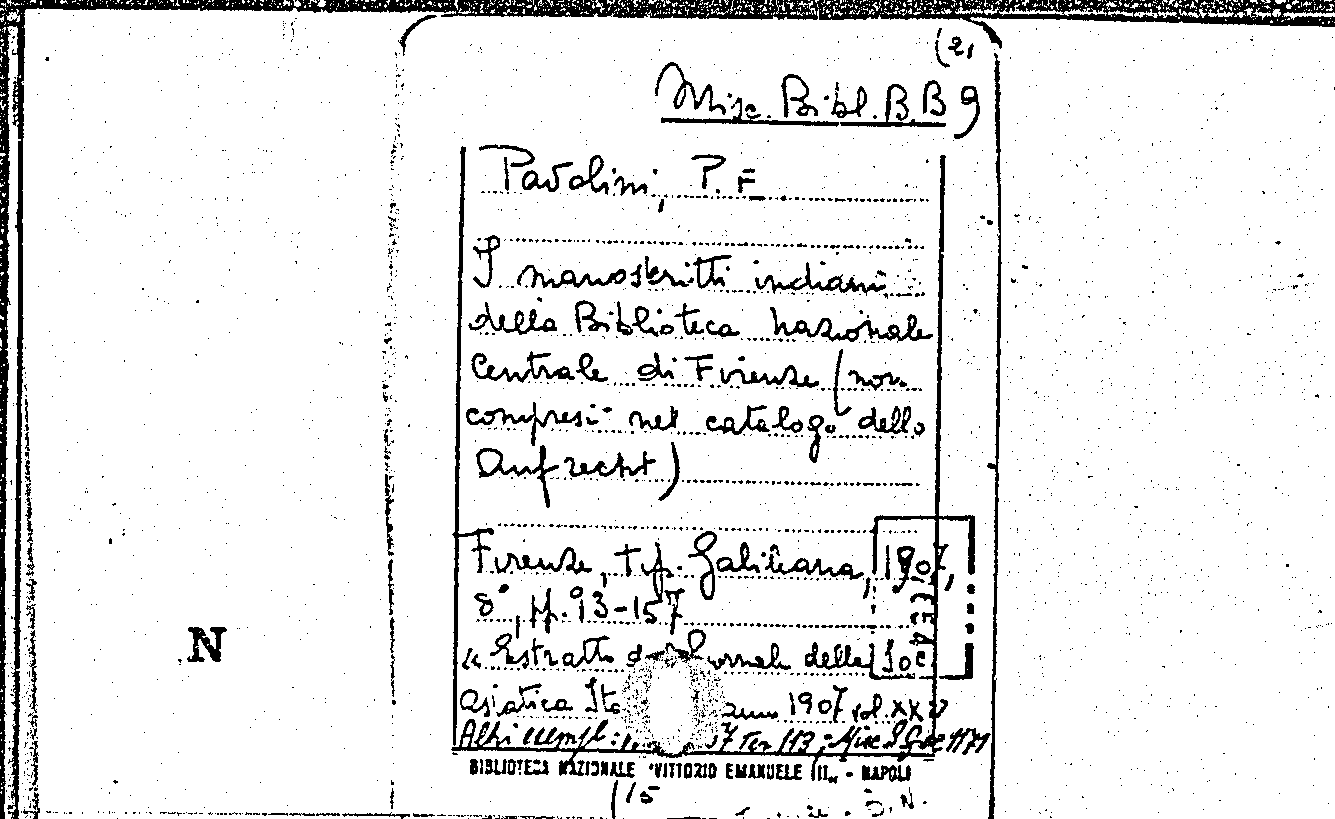 (2,
Misc. Bibl. B. B 9
Pavolini, P. E.
I manoscritti indiani
della Biblioteca nazionale
Centrale di Firenze (non
compresi nel catalogo dello
Aufrecht)
Firenze, tip. Galileiana, 1907,
8°, pp. 93-157
"Estratto Giornale della Soc
asiatica Ita anno 1907 vol. XX
Altri esempl: 113; Misc
BIBLIOTECA NAZIONALE "VITTORIO EMANUELE III" - NAPOLI
N
(15